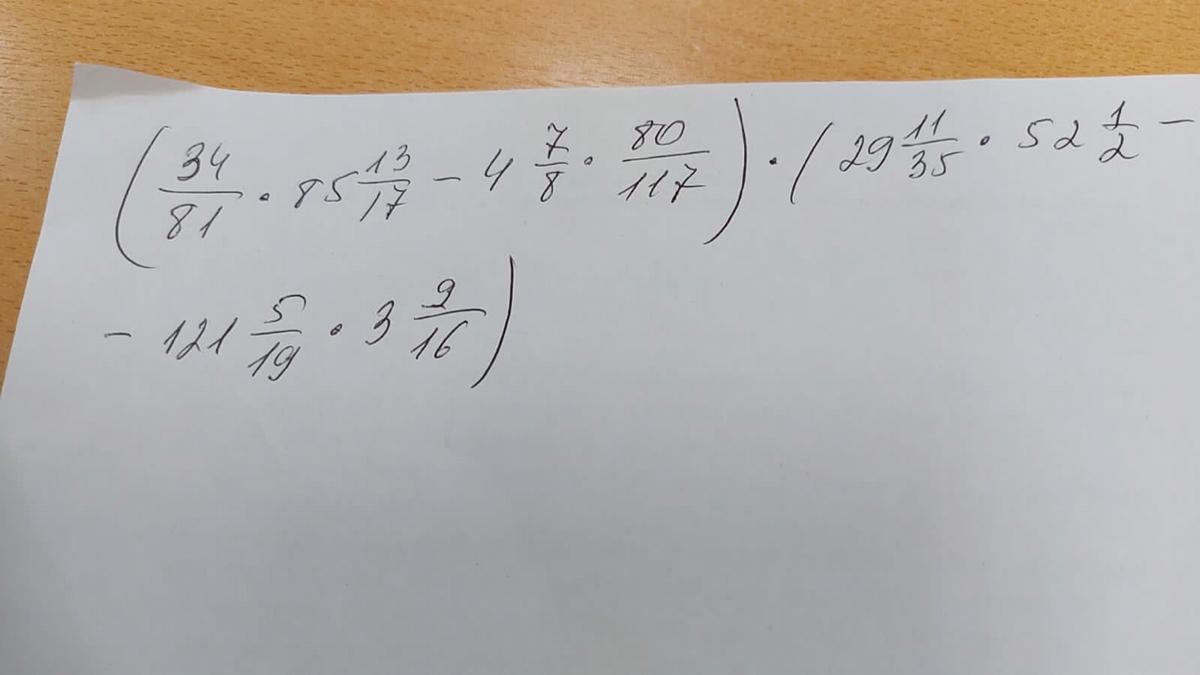 (34/81 · 85 13/17 - 4 7/8 · 80/117) · (29 11/35 · 52 1/2 -
- 121 5/19 · 3 9/16)